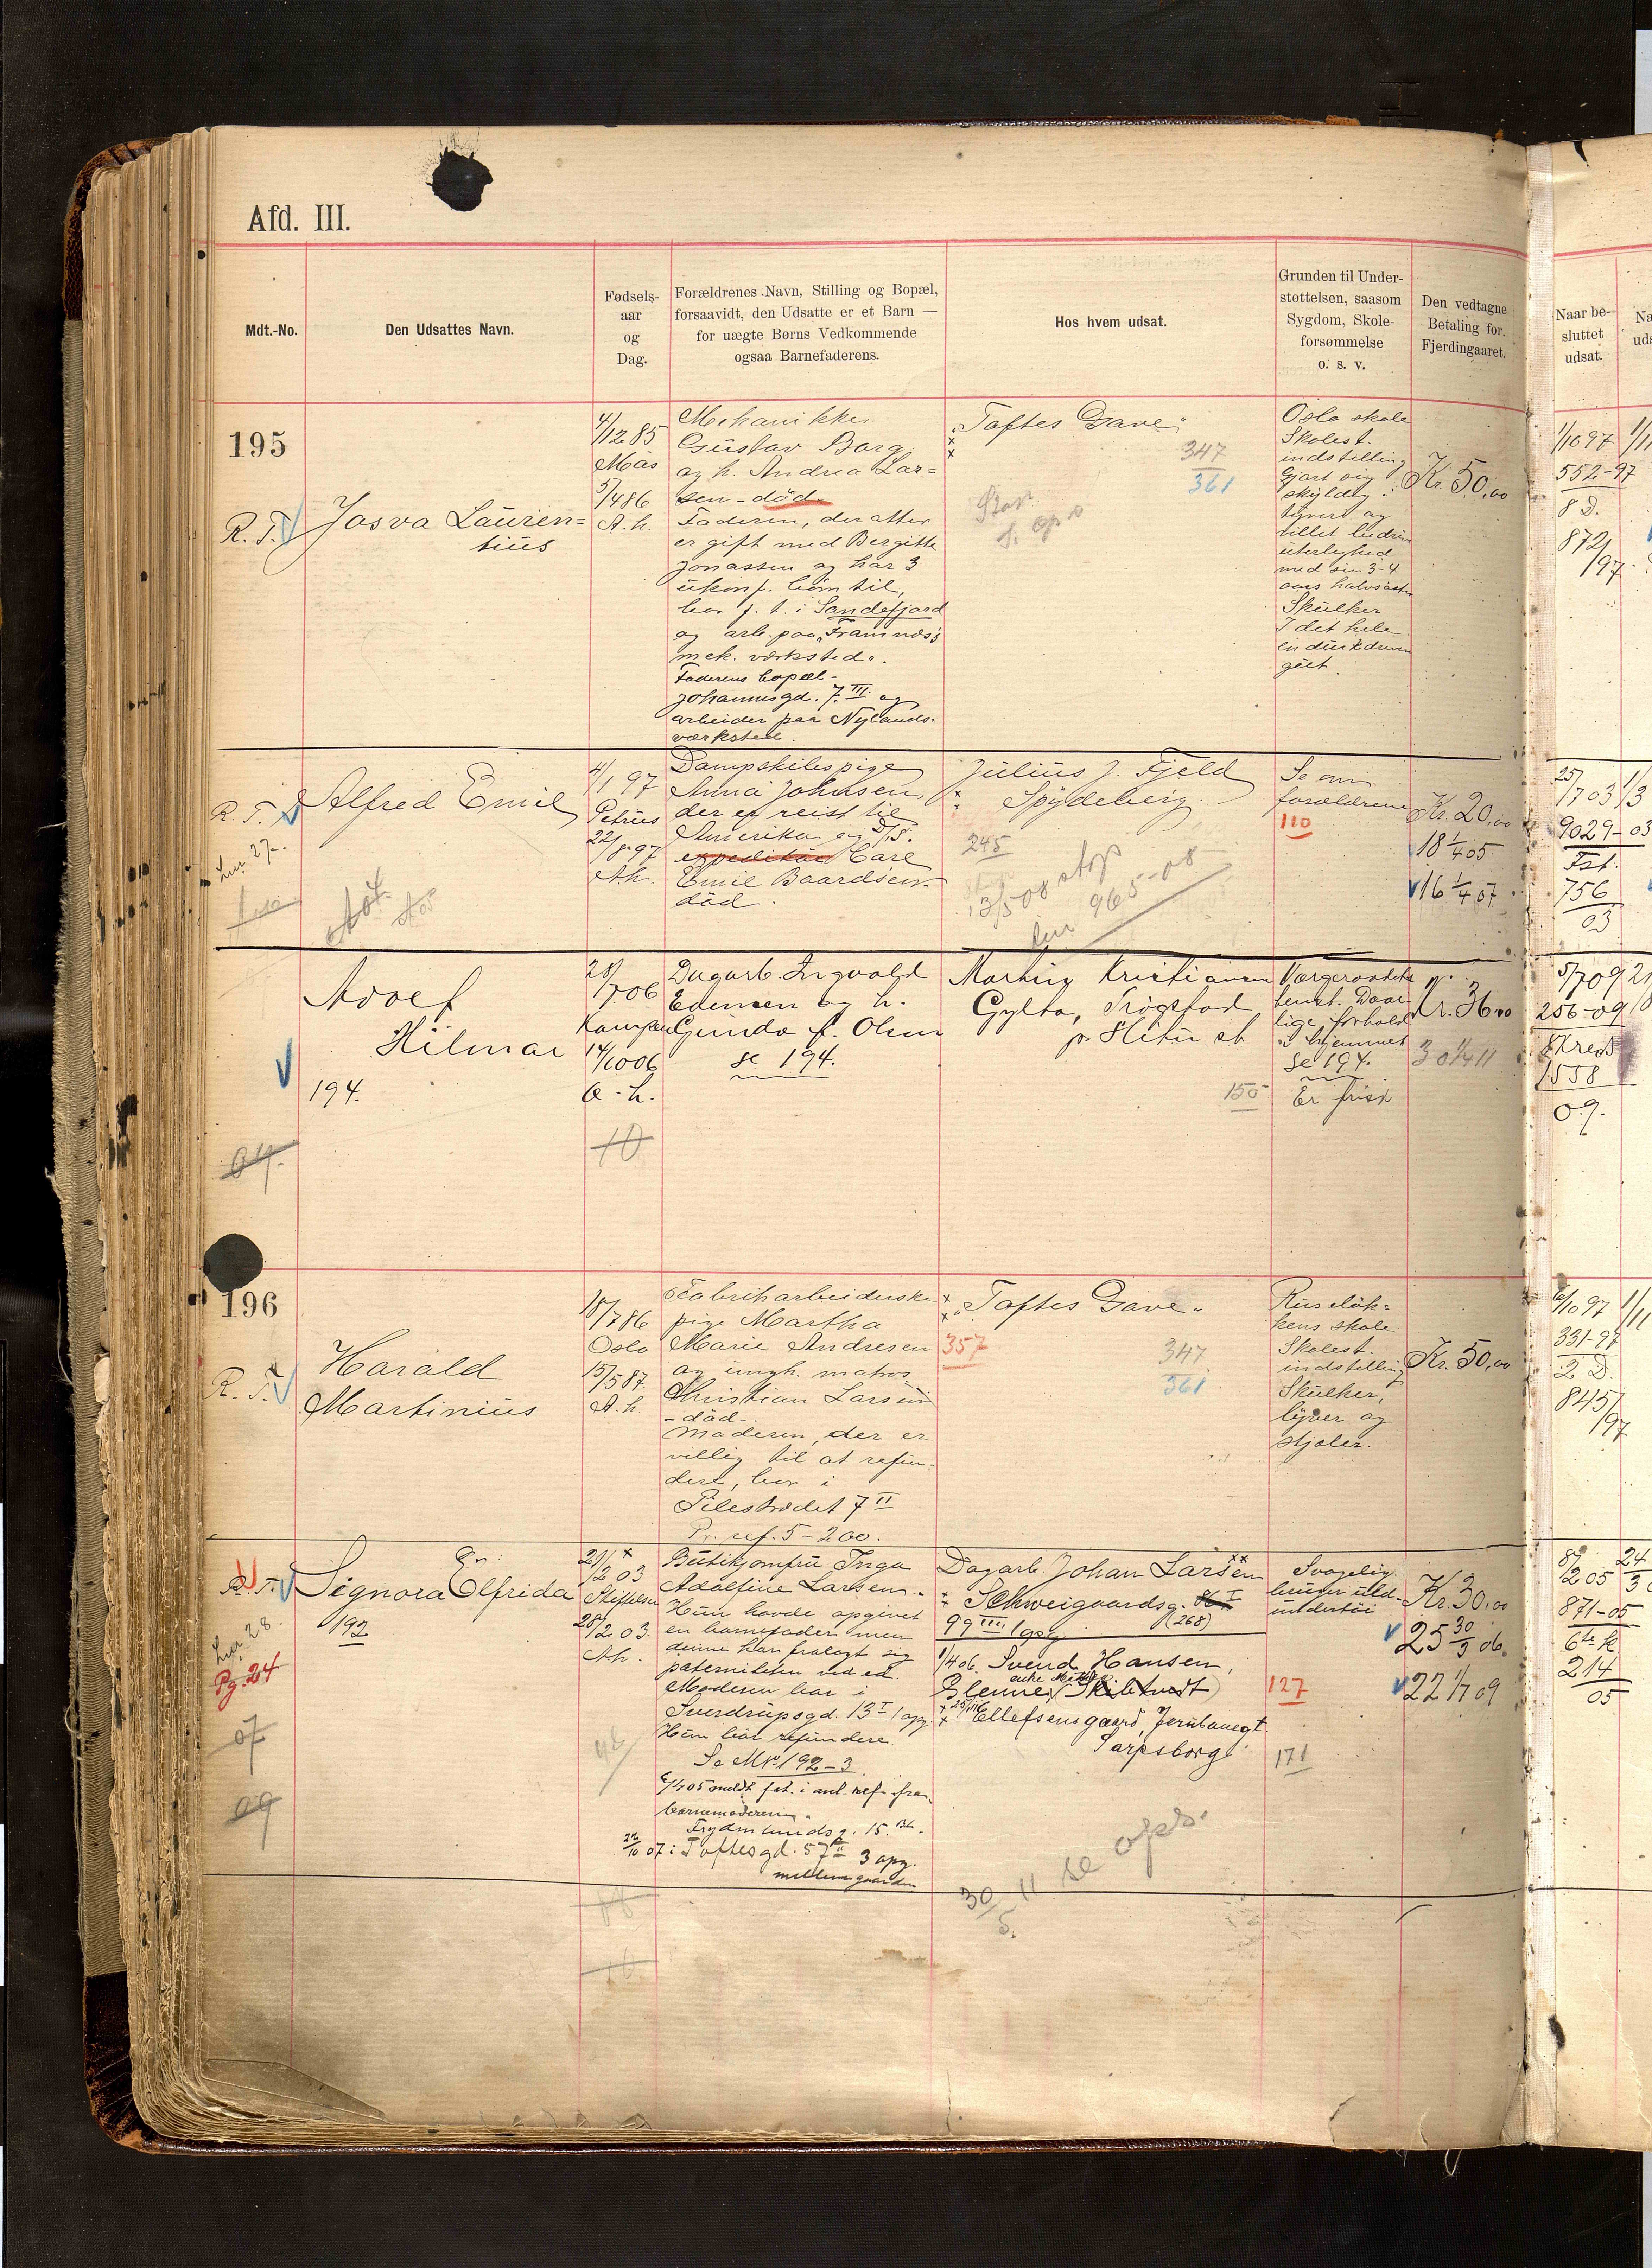 Afd. III.
Mdt.-No.
Den Udsattes Navn.
Fødsels-
aar
og
Dag.
Forældrenes Navn, Stilling og Bopæl,
forsaavidt, den Udsatte er et Barn —
for uægte Børns Vedkommende
ogsaa Barnefaderens.
Hos hvem udsat.
Grunden til Under-
støttelsen, saasom
Sygdom, Skole-
forsømmelse
o. s. v.
Den vedtagne
Betaling for.
Fjerdingaaret.
Naar be-
sluttet
udsat.
195
R. T.
Josva Lauren-
tius
4/12 85
Mos
5/4 86
A. h.
Mekanikker
Gustav Borg
og h. Andrea Lar-
sen - död
Faderen, der atter
er gift med Bergitte
Jonassen og har 3
ukonf. börn til,
bor f. t. i Sandefjord
og arb. paa „Framnæs"
mek. værksted".
Faderens bopæl -
Johannesgd. 7 III og
arbeider paa Nylands-
værksted.
„Toftes Gave"
347
361
Oslo skole
Skolest.
indstilling
Gjort sig
skyldig i
tyveri og
utuglighed
med sin 3-4
aars halvsöster
Skulker
I det hele
en durkdreven
gut.
Kr. 50,00
1/10 97
552-97
8 D.
872/97
R. T.
Alfred Emil
4/1 97
Petrus
22/8 97
A.h.
Dampskibspige
Anna Johnsen,
der er reist til
Amerika og
expeditör Carl
Emil Baardsen
död.
Julius J. Fjeld
Spydeberg.
245
13/5 08 stop
965-08
Se om
forældrene
110
Kr. 20,00
18 1/4 05
16 1/4 07
25/7 03
9029-03
Fst.
756
03
Adolf
Hilmar
194.
28/7 06
Kampen
14/10 06
A. h.
10
Dagarb. Ingvald
Edensen og h.
Gunda f. Olsen
se 194.
Martin Kristiansen
Gylta, Trøgstad
p. Slitu st
150
Værgeraadets
Daar-
lige forhold
i hjemmet
Se 194.
Er frisk
Kr. 36,00
30 1/4 11
5/7 09
256-09
Kreds
1558
09.
196
R. T.
Harald
Martinius
18/7 86
Oslo
15/5 87
A. h.
Fabrikarbeiderske
pige Martha
Marie Andresen
og ungk. matros
Christian Larsen
- död -
Moderen, der er
villig til at refun-
dere, bor i
Pilestrædet 7 II
Pr. ref. 5-200.
„Toftes Gave"
357
347
361
Ruselök-
kens skole
Skolest.
indstilling
Skulker,
lyver og
stjæler.
Kr. 50,00
6/10 97
331-97
2 D.
845/97
R. T.
Signora Elfrida
192
Pg. 24
07
09
Stiftelsen
28/12 03
A.h.
Butikjomfru Inga
Adolfine Larsen.
Hun havde opgivet
en barnefader men
denne har fralagt sig
paterniteten ved ed.
Moderen bor i
Sverdrupsgd. 13 I opg.
Hun bör refundere.
Se Mk 192-3
barnemoderen.
22/10 07 i Toftesgd. 57 II 3 opg.
mellemgaarden
Dagarb. Johan Larsen
Schweigaardsg.
99 III opg. (268)
1/4 06. Svend Hansen,
Glenne, Skibtvedt
Ellefsensgaard, Jernbanegt
Sarpsborg
30/5 11 se ops.
Svagelig
underföi
127
171
Kr. 30,00
25 30/9 06.
22 1/7 09
8/2 05
871-05
6te K
214
05